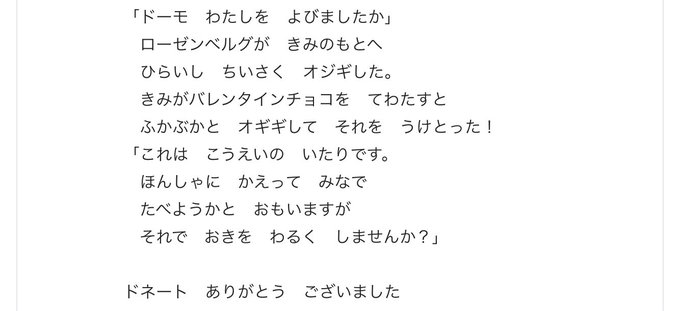 「ドーモ　わたしを　よびましたか」
　ローゼンベルグが　きみのもとへ
　ひらいし　ちいさく　オジギした。
　きみがバレンタインチョコを　てわたすと
　ふかぶかと　オギギして　それを　うけとった！
「これは　こうえいの　いたりです。
　ほんしゃに　かえって　みなで
　たべようかと　おもいますが
　それで　おきを　わるく　しませんか？」
ドネート　ありがとう　ございました